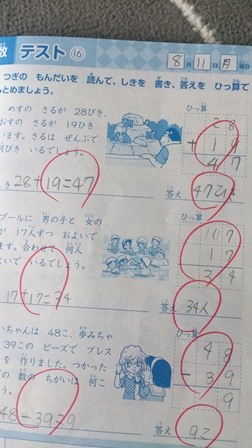 数 テスト ⑯ 8月11日月
つぎの もんだいを 読んで、しきを 書き、答えを ひっ算で
とめましょう。
めすの さるが 28ひき、
おすの さるが 19ひき
います。さるは ぜんぶで
何びき いるでしょう。
ひっ算
28
+19
47
き 28+19=47
答え 47ひき
プールに 男の子と 女の
が 17人ずつ およいで
います。合わせて 何人
いで いるでしょう。
ひっ算
17
17
34
17+17=34
答え 34人
いちゃんは 48こ、夢みちゃ
39この ビーズで ブレス
を 作りました。つかった
の 数の ちがいは 何こ
ひっ算
48
-39
9
48-39=9
答え 9こ